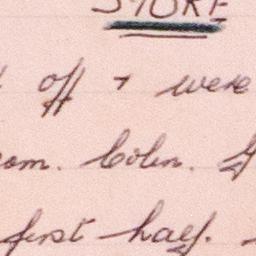 STORE
off + were
om. Colin.
first half.